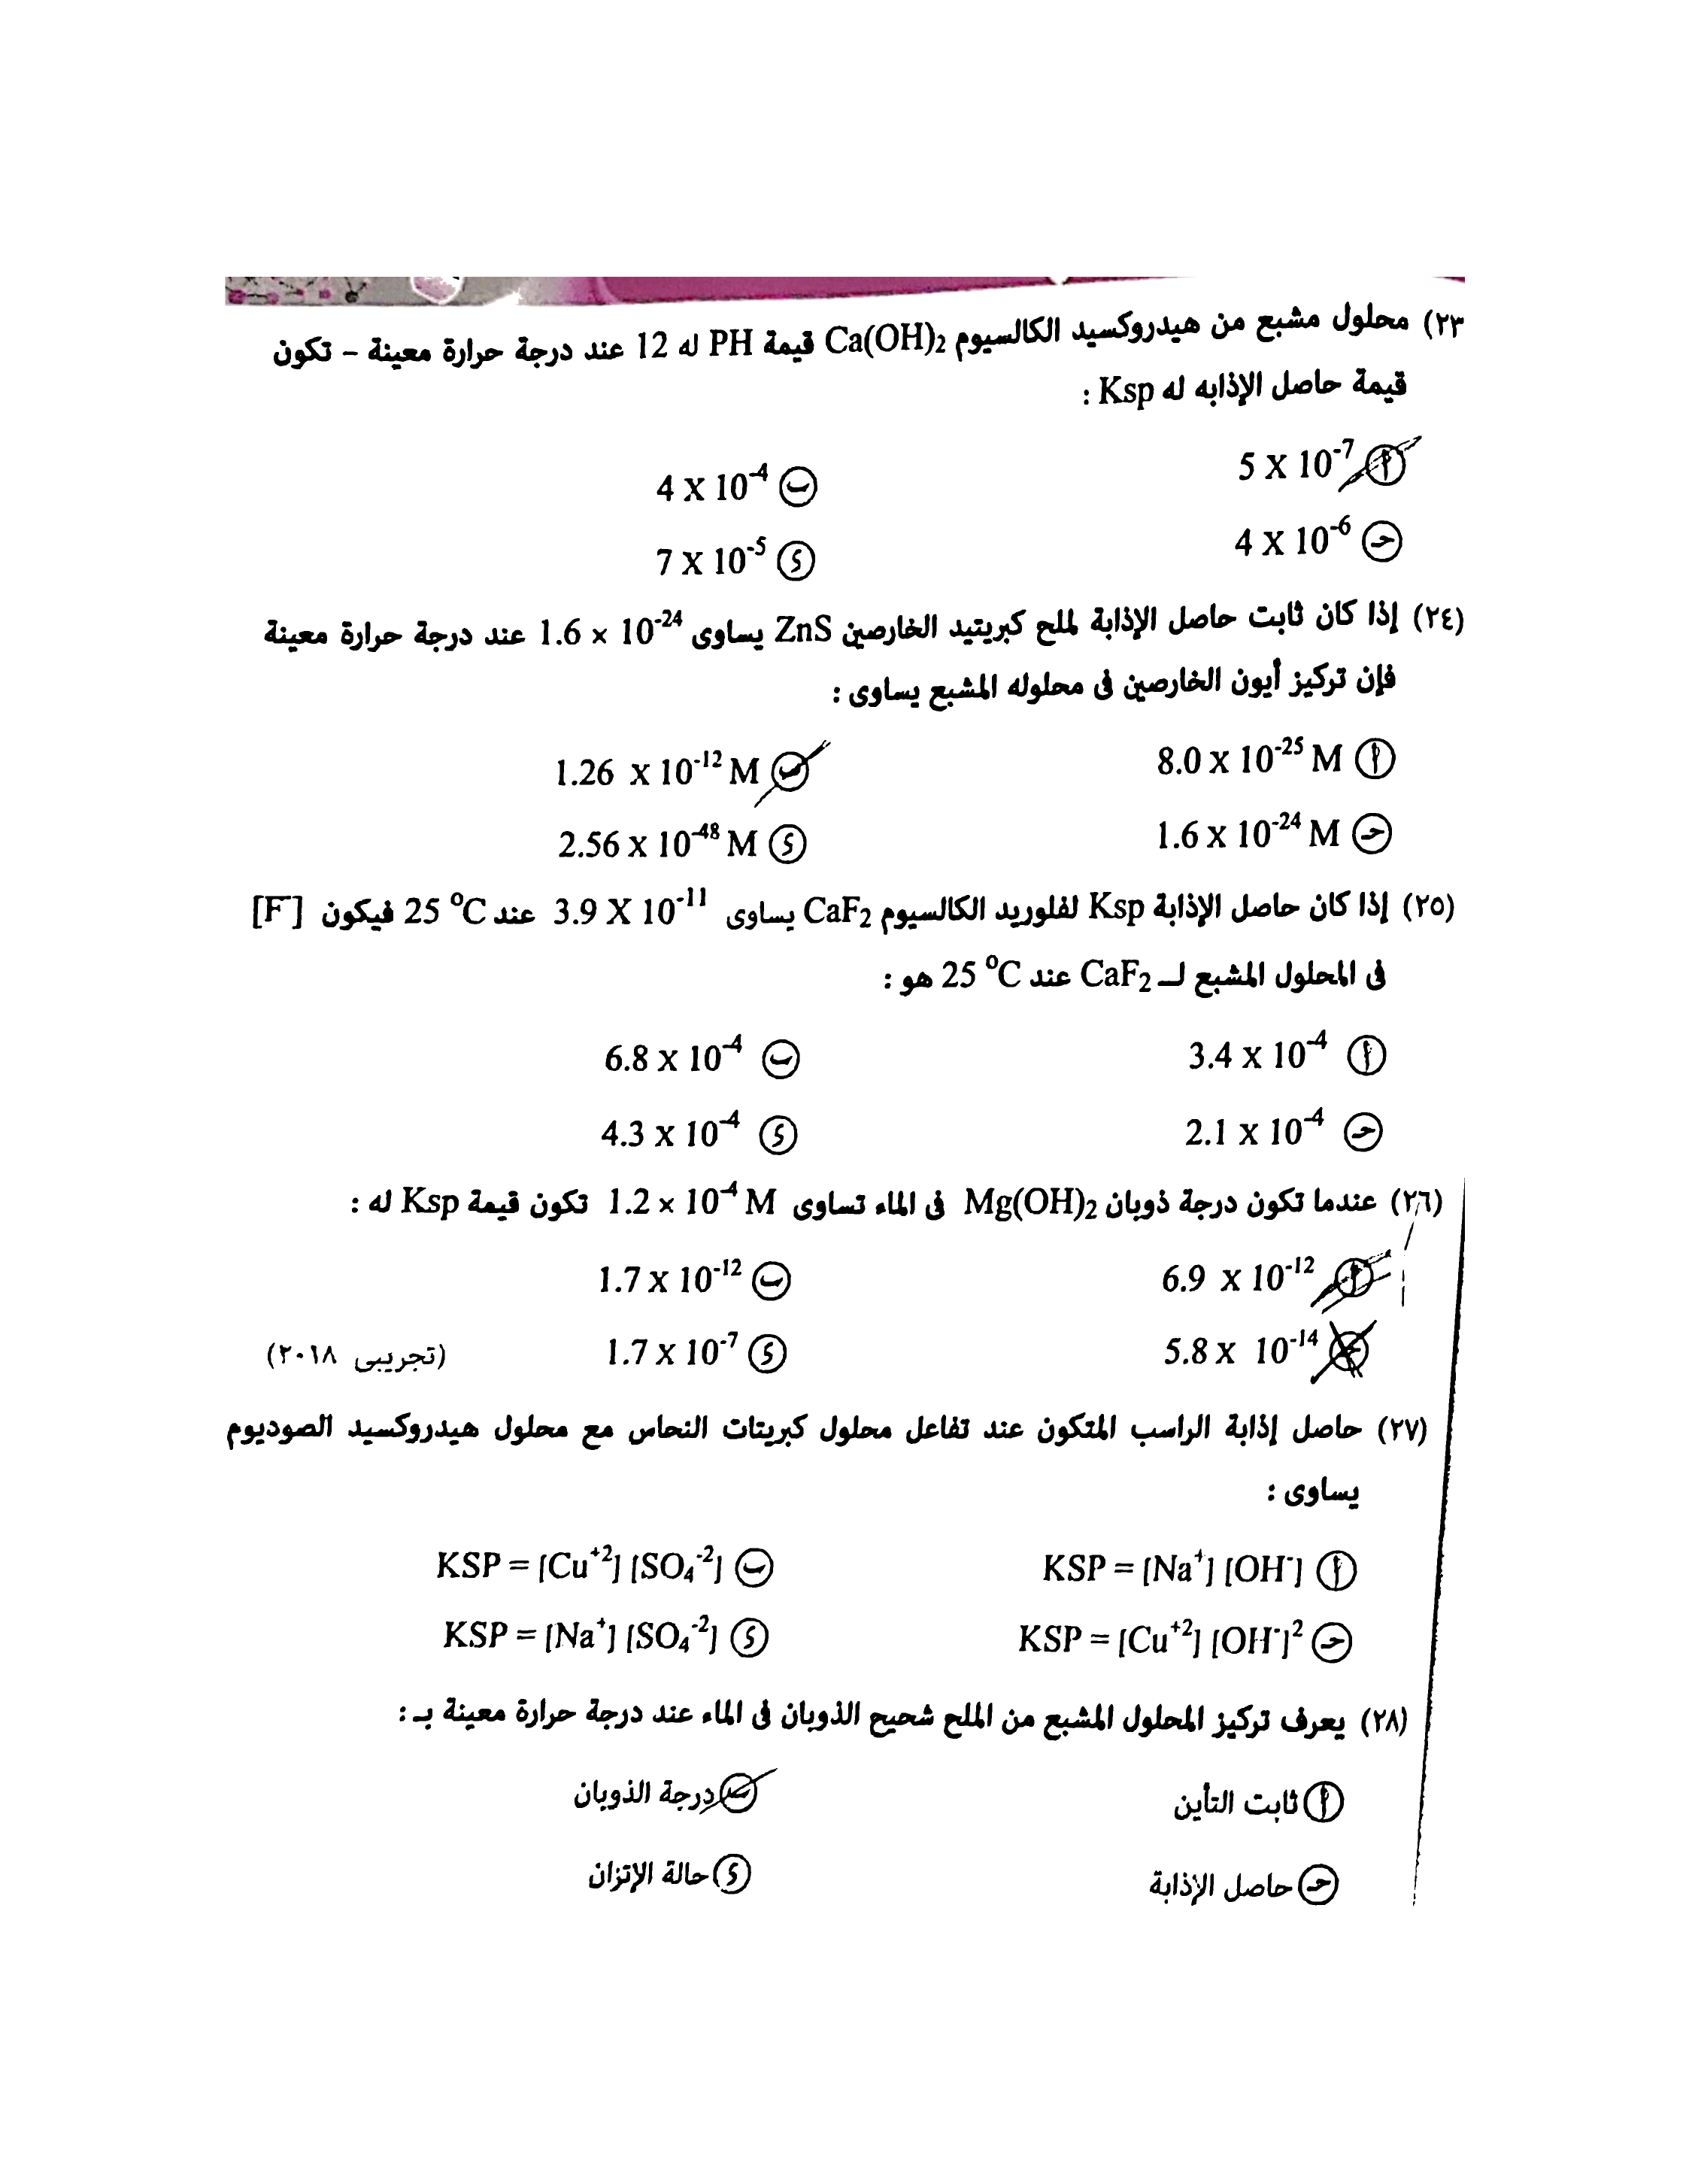 (٢٣) محلول مشبع من هيدروكسيد الكالسيوم Ca(OH)₂ قيمة PH له 12 عند درجة حرارة معينة – تكون
قيمة حاصل الإذابه له Ksp :
أ 5 X 10⁻⁷
ب 4 X 10⁻⁴
جـ 4 X 10⁻⁶
د 7 X 10⁻⁵
(٢٤) إذا كان ثابت حاصل الإذابة لملح كبريتيد الخارصين ZnS يساوى 1.6 × 10⁻²⁴ عند درجة حرارة معينة
فإن تركيز أيون الخارصين فى محلوله المشبع يساوى :
أ 8.0 X 10⁻²⁵ M
ب 1.26 X 10⁻¹² M
جـ 1.6 X 10⁻²⁴ M
د 2.56 X 10⁻⁴⁸ M
(٢٥) إذا كان حاصل الإذابة Ksp لفلوريد الكالسيوم CaF₂ يساوى 3.9 X 10⁻¹¹ عند 25 °C فيكون [F⁻]
فى المحلول المشبع لـ CaF₂ عند 25 °C هو :
أ 3.4 X 10⁻⁴
ب 6.8 X 10⁻⁴
جـ 2.1 X 10⁻⁴
د 4.3 X 10⁻⁴
(٢٦) عندما تكون درجة ذوبان Mg(OH)₂ فى الماء تساوى 1.2 × 10⁻⁴ M تكون قيمة Ksp له :
أ 6.9 X 10⁻¹²
ب 1.7 X 10⁻¹²
جـ 5.8 X 10⁻¹⁴
د 1.7 X 10⁻⁷ (تجريبى ٢٠١٨)
(٢٧) حاصل إذابة الراسب المتكون عند تفاعل محلول كبريتات النحاس مع محلول هيدروكسيد الصوديوم
يساوى :
أ KSP = [Na⁺] [OH⁻]
ب KSP = [Cu⁺²] [SO₄⁻²]
جـ KSP = [Cu⁺²] [OH⁻]²
د KSP = [Na⁺] [SO₄⁻²]
(٢٨) يعرف تركيز المحلول المشبع من الملح شحيح الذوبان فى الماء عند درجة حرارة معينة بـ :
أ ثابت التأين
ب درجة الذوبان
جـ حاصل الإذابة
د حالة الإتزان